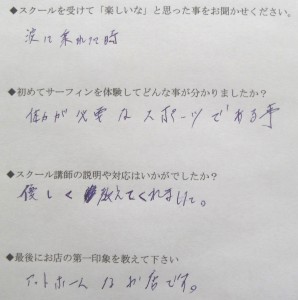 ◆スクールを受けて「楽しいな」と思った事をお聞かせください。
波に乗れた時
◆初めてサーフィンを体験してどんな事が分かりましたか？
体力が必要なスポーツである事
◆スクール講師の説明や対応はいかがでしたか？
優しく教えてくれました。
◆最後にお店の第一印象を教えて下さい
アットホームなお店です。